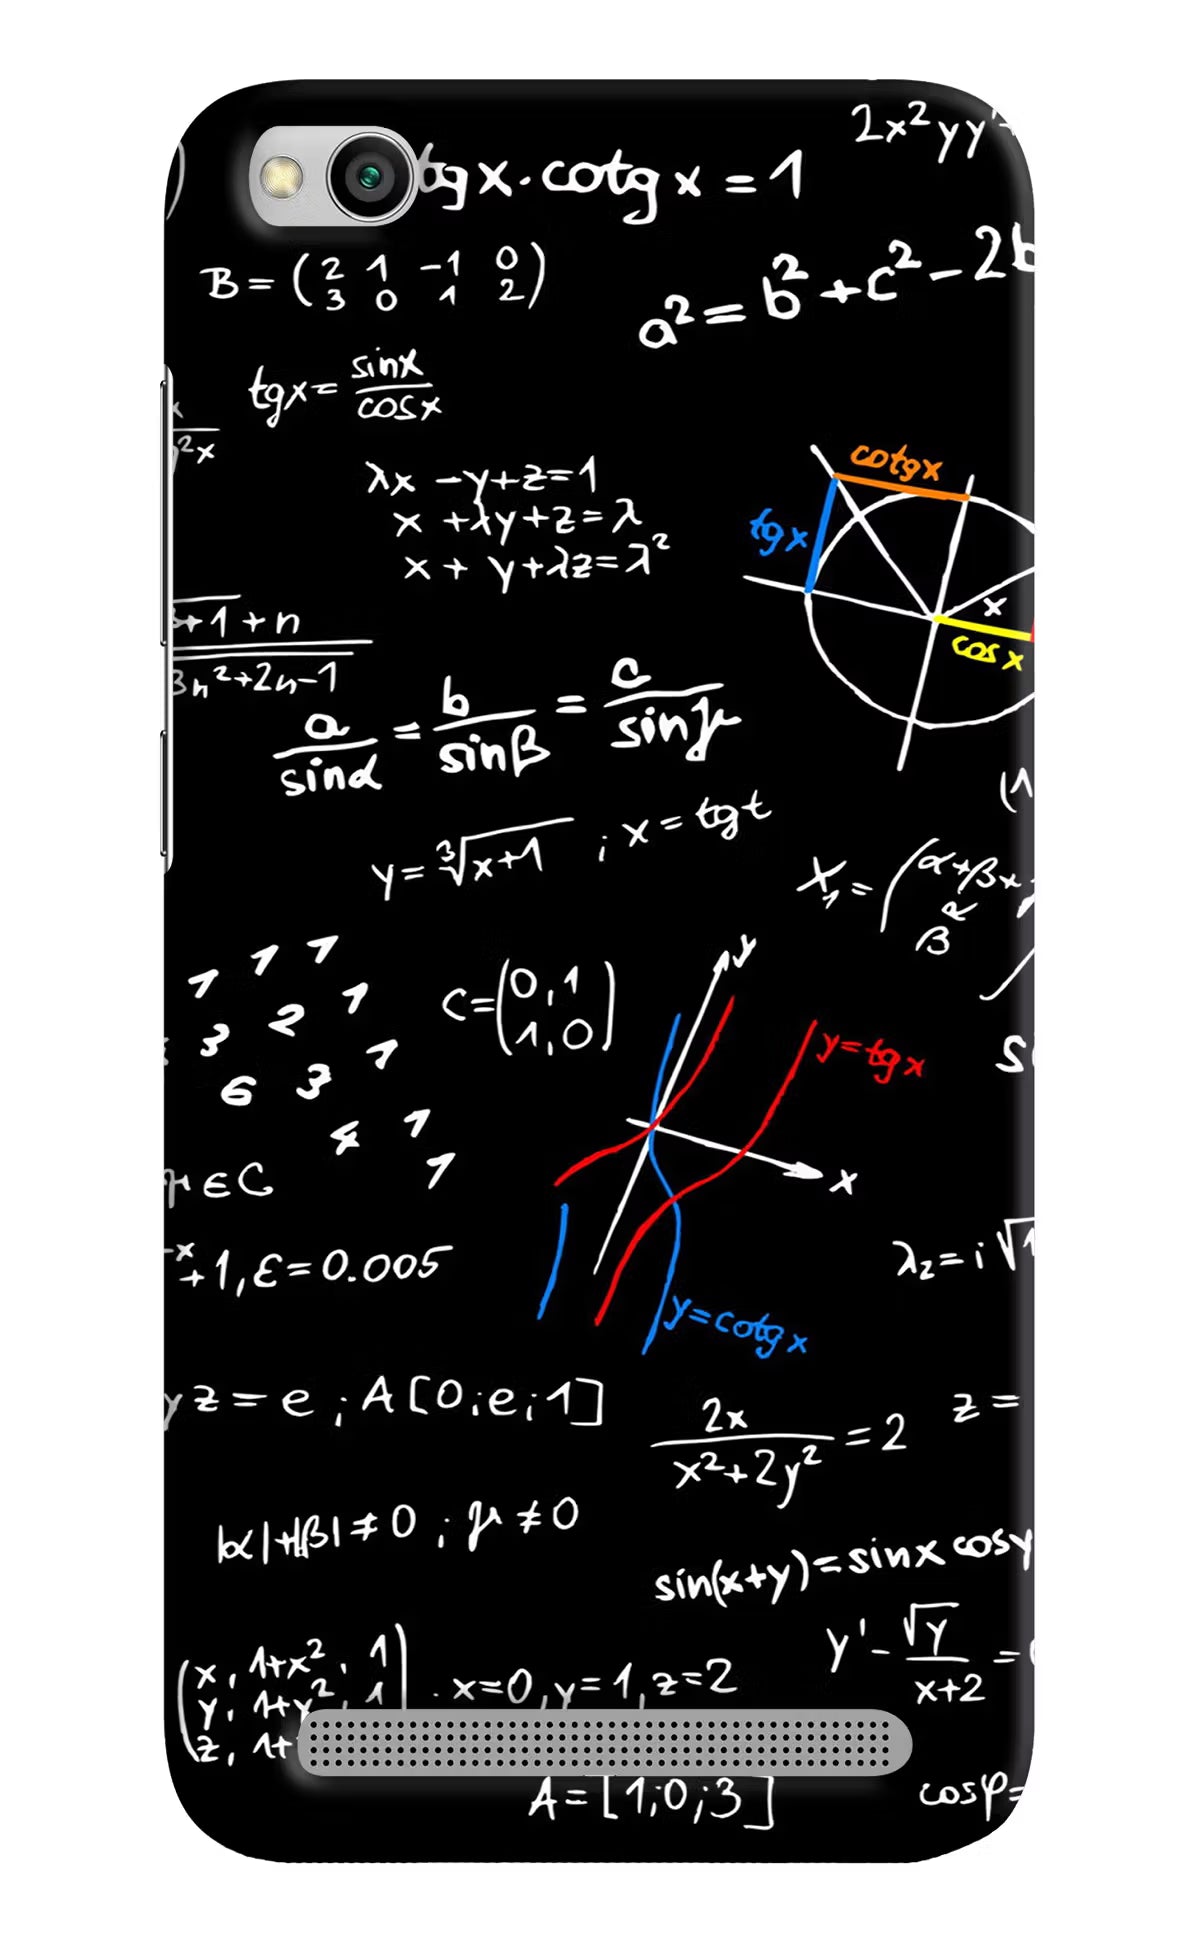 2x²yy'
tgx·cotgx = 1
B = (2 1 -1 0
3 0 1 2)
a² = b² + c² - 2b
tgx = sinx
cosx
²x
cotgx
tgx
x
cosx
λx - y + z = 1
x + λy + z = λ
x + y + λz = λ²
+1 + n
3n²+2n-1
a/sinα = b/sinβ = c/sinγ
y = ³√x+1 ; x = tgt
X₁ = (α+βx
β
1 1 1
3 2 1
6 3 1
4 1
1
C = (0,1
1,0)
y
y=tgx
x
y=cotgx
∈C
-x
+1, ε = 0.005
λ₂ = i√1
yz = e ; A[0;e;1]
2x
x²+2y² = 2
z =
|α|+|β| ≠ 0 ; μ ≠ 0
sin(x+y) = sinx cosy
y' - √y
x+2 =
(x, 1+x², 1)
y, 1+y², 1
z, 1+
x=0, y=1, z=2
A = [1;0;3]
cosφ=